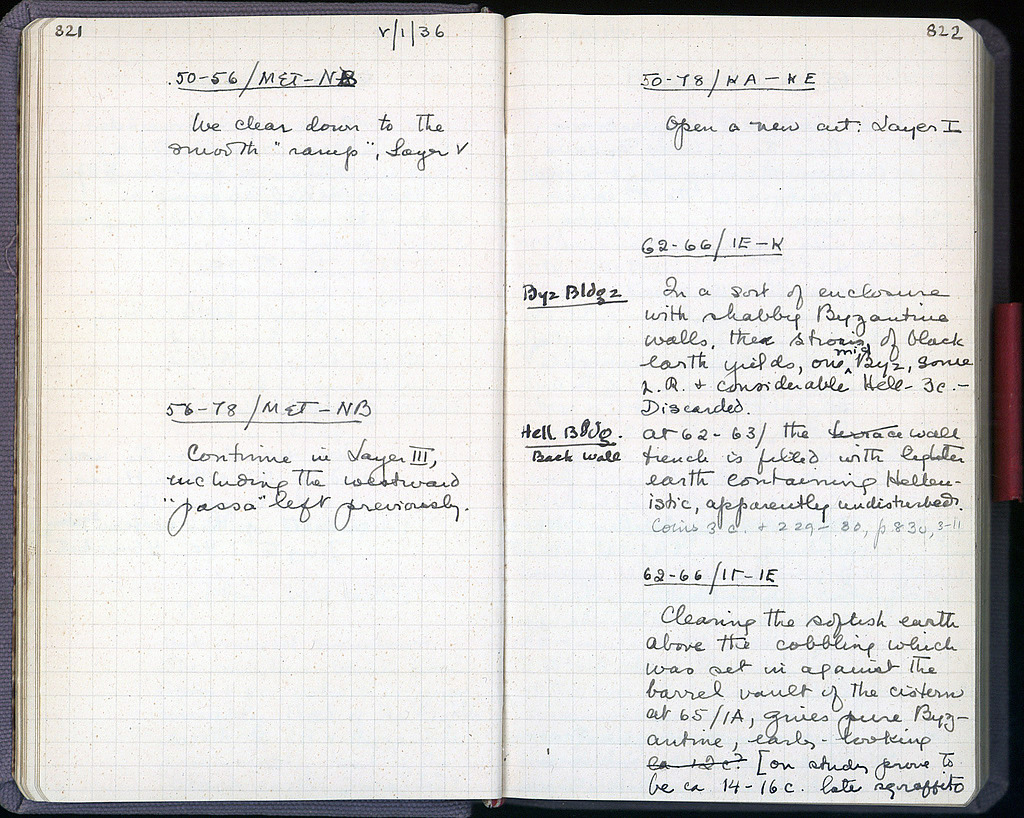 821
V/1/36
50-56/MET-NB
We clear down to the
smooth "ramp", Layer V
56-78/MET-NB
Continue in Layer III,
including the westward
"passa" left previously.
822
50-78/KA-KE
Open a new cut: Layer I
62-66/IE-K
Byz Bldg 2
In a sort of enclosure
with shabby Byzantine
walls, the of black
earth yields, one mid Byz, some
L.R. + considerable Hell- 3c.-
Discarded.
Hell. Bldg.
Back wall
at 62-63/ the terrace wall
trench is filled with lighter
earth containing Hellen-
istic, apparently undisturbed.
Coins 3 c. + 229-30, p. 830, 3-11
62-66/IΓ-IE
Clearing the softish earth
above the cobbling which
was set in against the
barrel vault of the cistern
at 65/IA, gives pure Byz-
antine, early-looking
ca 12c? [on study prove to
be ca 14-16c. late sgraffito